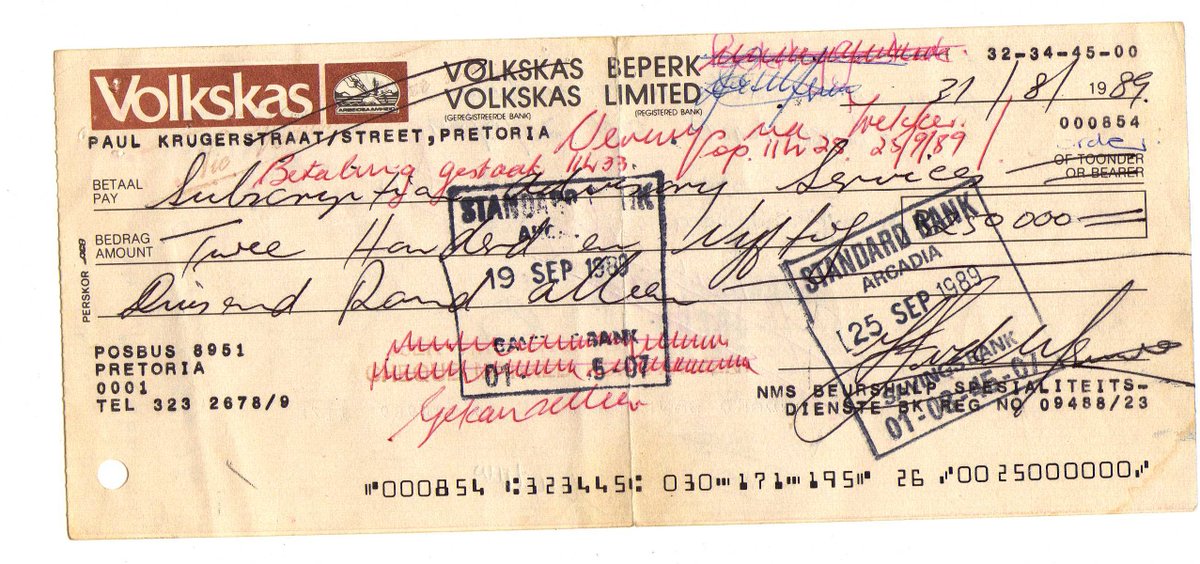 Volkskas
VOLKSKAS BEPERK
VOLKSKAS LIMITED
(GEREGISTREERDE BANK) (REGISTERED BANK)
ARBEIDSAAMHEID
32-34-45-00
31/8/1989
PAUL KRUGERSTRAAT/STREET, PRETORIA
000854
Betaling gestaak 11h33
11h28 25/9/89
order
OF TOONDER
OR BEARER
BETAAL
PAY
Subscription Advisory Services
BEDRAG
AMOUNT
Twee Honderd en Vyftig
R250 000=
Duisend Rand Alleen
PERSKOR
STANDARD BANK
19 SEP 1989
01- 5-07
STANDARD BANK
ARCADIA
25 SEP 1989
SAVINGS BANK
POSBUS 8951
PRETORIA
0001
TEL 323 2678/9
Gekanselleer
NMS BEURSHULP SPESIALITEITS-
DIENSTE BK REG NO 09488/23
⑈000854 ⑆323445⑆ 030⑉171⑉195⑈ 26 ⑇0025000000⑇